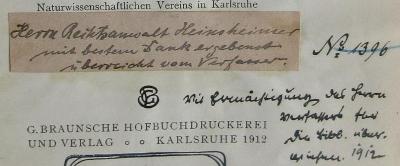 Naturwissenschaftlichen Vereins in Karlsruhe
Herrn Rechtsanwalt Heinsheimer
mit bestem Dank ergebenst
überreicht vom Verfasser.
No 1396
Mit Ermächtigung des Herrn
Verfassers für
die Bibl. über-
wiesen. 1912
G. BRAUNSCHE HOFBUCHDRUCKEREI
UND VERLAG ∘ ∘ KARLSRUHE 1912